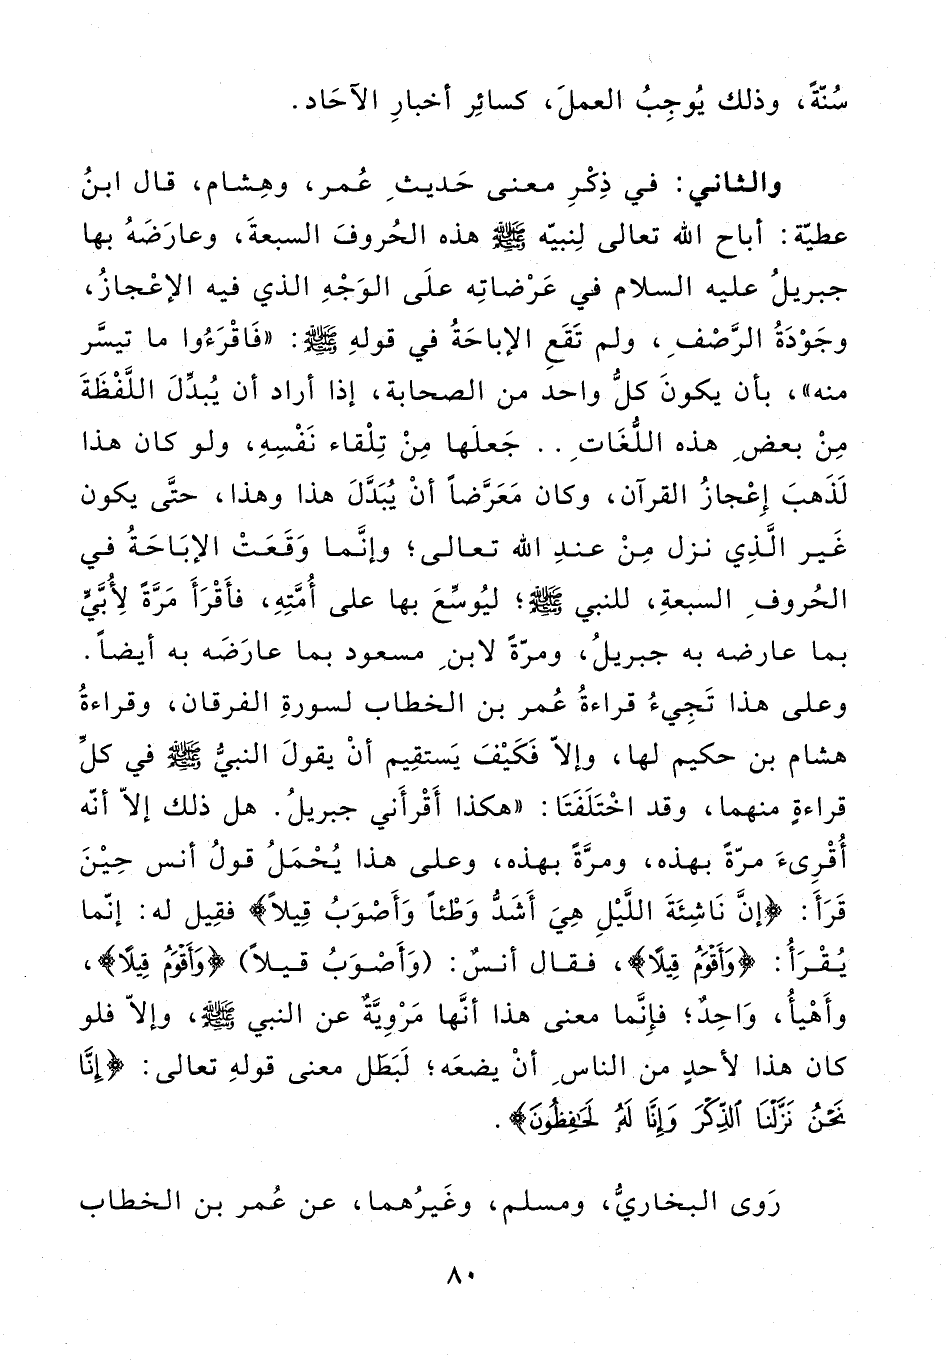 سُنّةً، وذلك يُوجِبُ العملَ، كسائِر أخبارِ الآحَاد.
والثاني: في ذِكْرِ معنى حَديثِ عُمر، وهِشام، قال ابنُ
عطيّة: أباح الله تعالى لِنبيّه ﷺ هذه الحُروفَ السبعةَ، وعارَضَهُ بها
جبريلُ عليه السلام في عَرْضاتِه علَى الوَجْهِ الذي فيه الإعْجازُ،
وجَوْدَةُ الرَّصْفِ، ولم تَقَعِ الإباحَةُ في قولهِ ﷺ: «فَاقْرَءُوا ما تيسَّر
منه»، بأن يكونَ كلُّ واحد من الصحابة، إذا أراد أن يُبدِّلَ اللَّفْظَةَ
مِنْ بعضِ هذه اللُّغَاتِ.. جَعلَها مِنْ تِلْقاء نَفْسِهِ، ولو كان هذا
لَذَهبَ إعْجازُ القرآن، وكان مَعَرَّضاً أنْ يُبَدَّلَ هذا وهذا، حتَّى يكون
غَير الَّذِي نزل مِنْ عندِ الله تعالى؛ وإنَّما وَقَعَتْ الإبَاحَةُ في
الحُروفِ السبعةِ، للنبي ﷺ؛ ليُوسِّعَ بها على أُمَّتِهِ، فأَقْرَأَ مَرَّةً لِأُبَيٍّ
بما عارضه به جبريلُ، ومرّةً لابنِ مسعود بما عارَضَه به أيضاً.
وعلى هذا تَجِيءُ قراءةُ عُمر بن الخطاب لسورةِ الفرقان، وقراءةُ
هشام بن حكيم لها، وإلاّ فَكَيْفَ يَستقِيم أنْ يقولَ النبيُّ ﷺ في كلِّ
قراءةٍ منهما، وقد اخْتَلَفَتَا: «هكذا أَقْرأَني جبريلُ. هل ذلك إلاّ أنّه
أُقْرِىءَ مرّةً بهذه، ومرَّةً بهذه، وعلى هذا يُحْمَلُ قولُ أنس حِيْنَ
قَرَأَ: ﴿إنَّ نَاشِئَةَ اللَّيْلِ هِيَ أَشَدُّ وَطْئاً وَأَصْوَبُ قِيلاً﴾ فقِيل له: إنّما
يُقْرَأُ: ﴿وَأَقْوَمُ قِيلًا﴾، فقال أنسٌ: (وَأَصْوَبُ قيلاً) ﴿وَأَقْوَمُ قِيلًا﴾،
وأَهْيأُ، وَاحِدٌ؛ فإنَّما معنى هذا أنَّها مَرْوِيَّةٌ عن النبي ﷺ، وإلاّ فلو
كان هذا لأحدٍ من الناسِ أنْ يضعَه؛ لَبَطَل معنى قولهِ تعالى: ﴿إِنَّا
نَحْنُ نَزَّلْنَا ٱلذِّكْرَ وَإِنَّا لَهُۥ لَحَـٰفِظُونَ﴾.
رَوى البخاريُّ، ومسلم، وغَيرُهما، عن عُمر بن الخطاب
٨٠